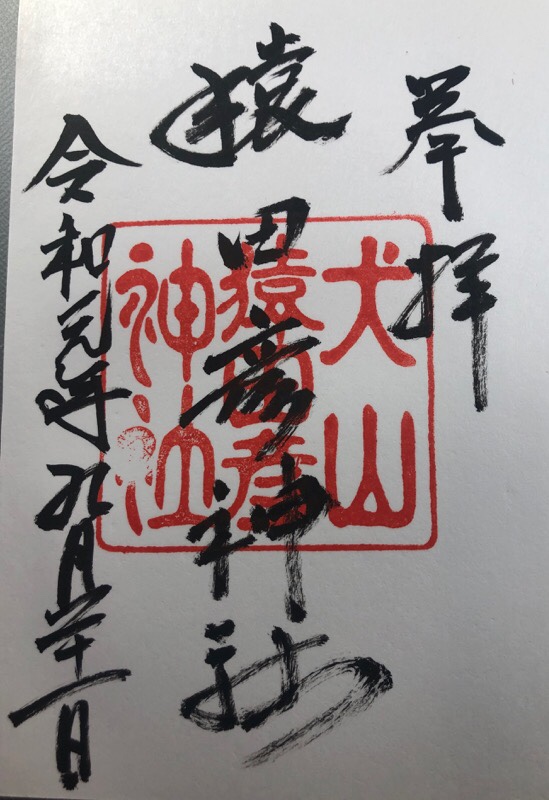 奉拝
猿田彦神社
令和元年九月二十一日
犬山
猿田彦
神社